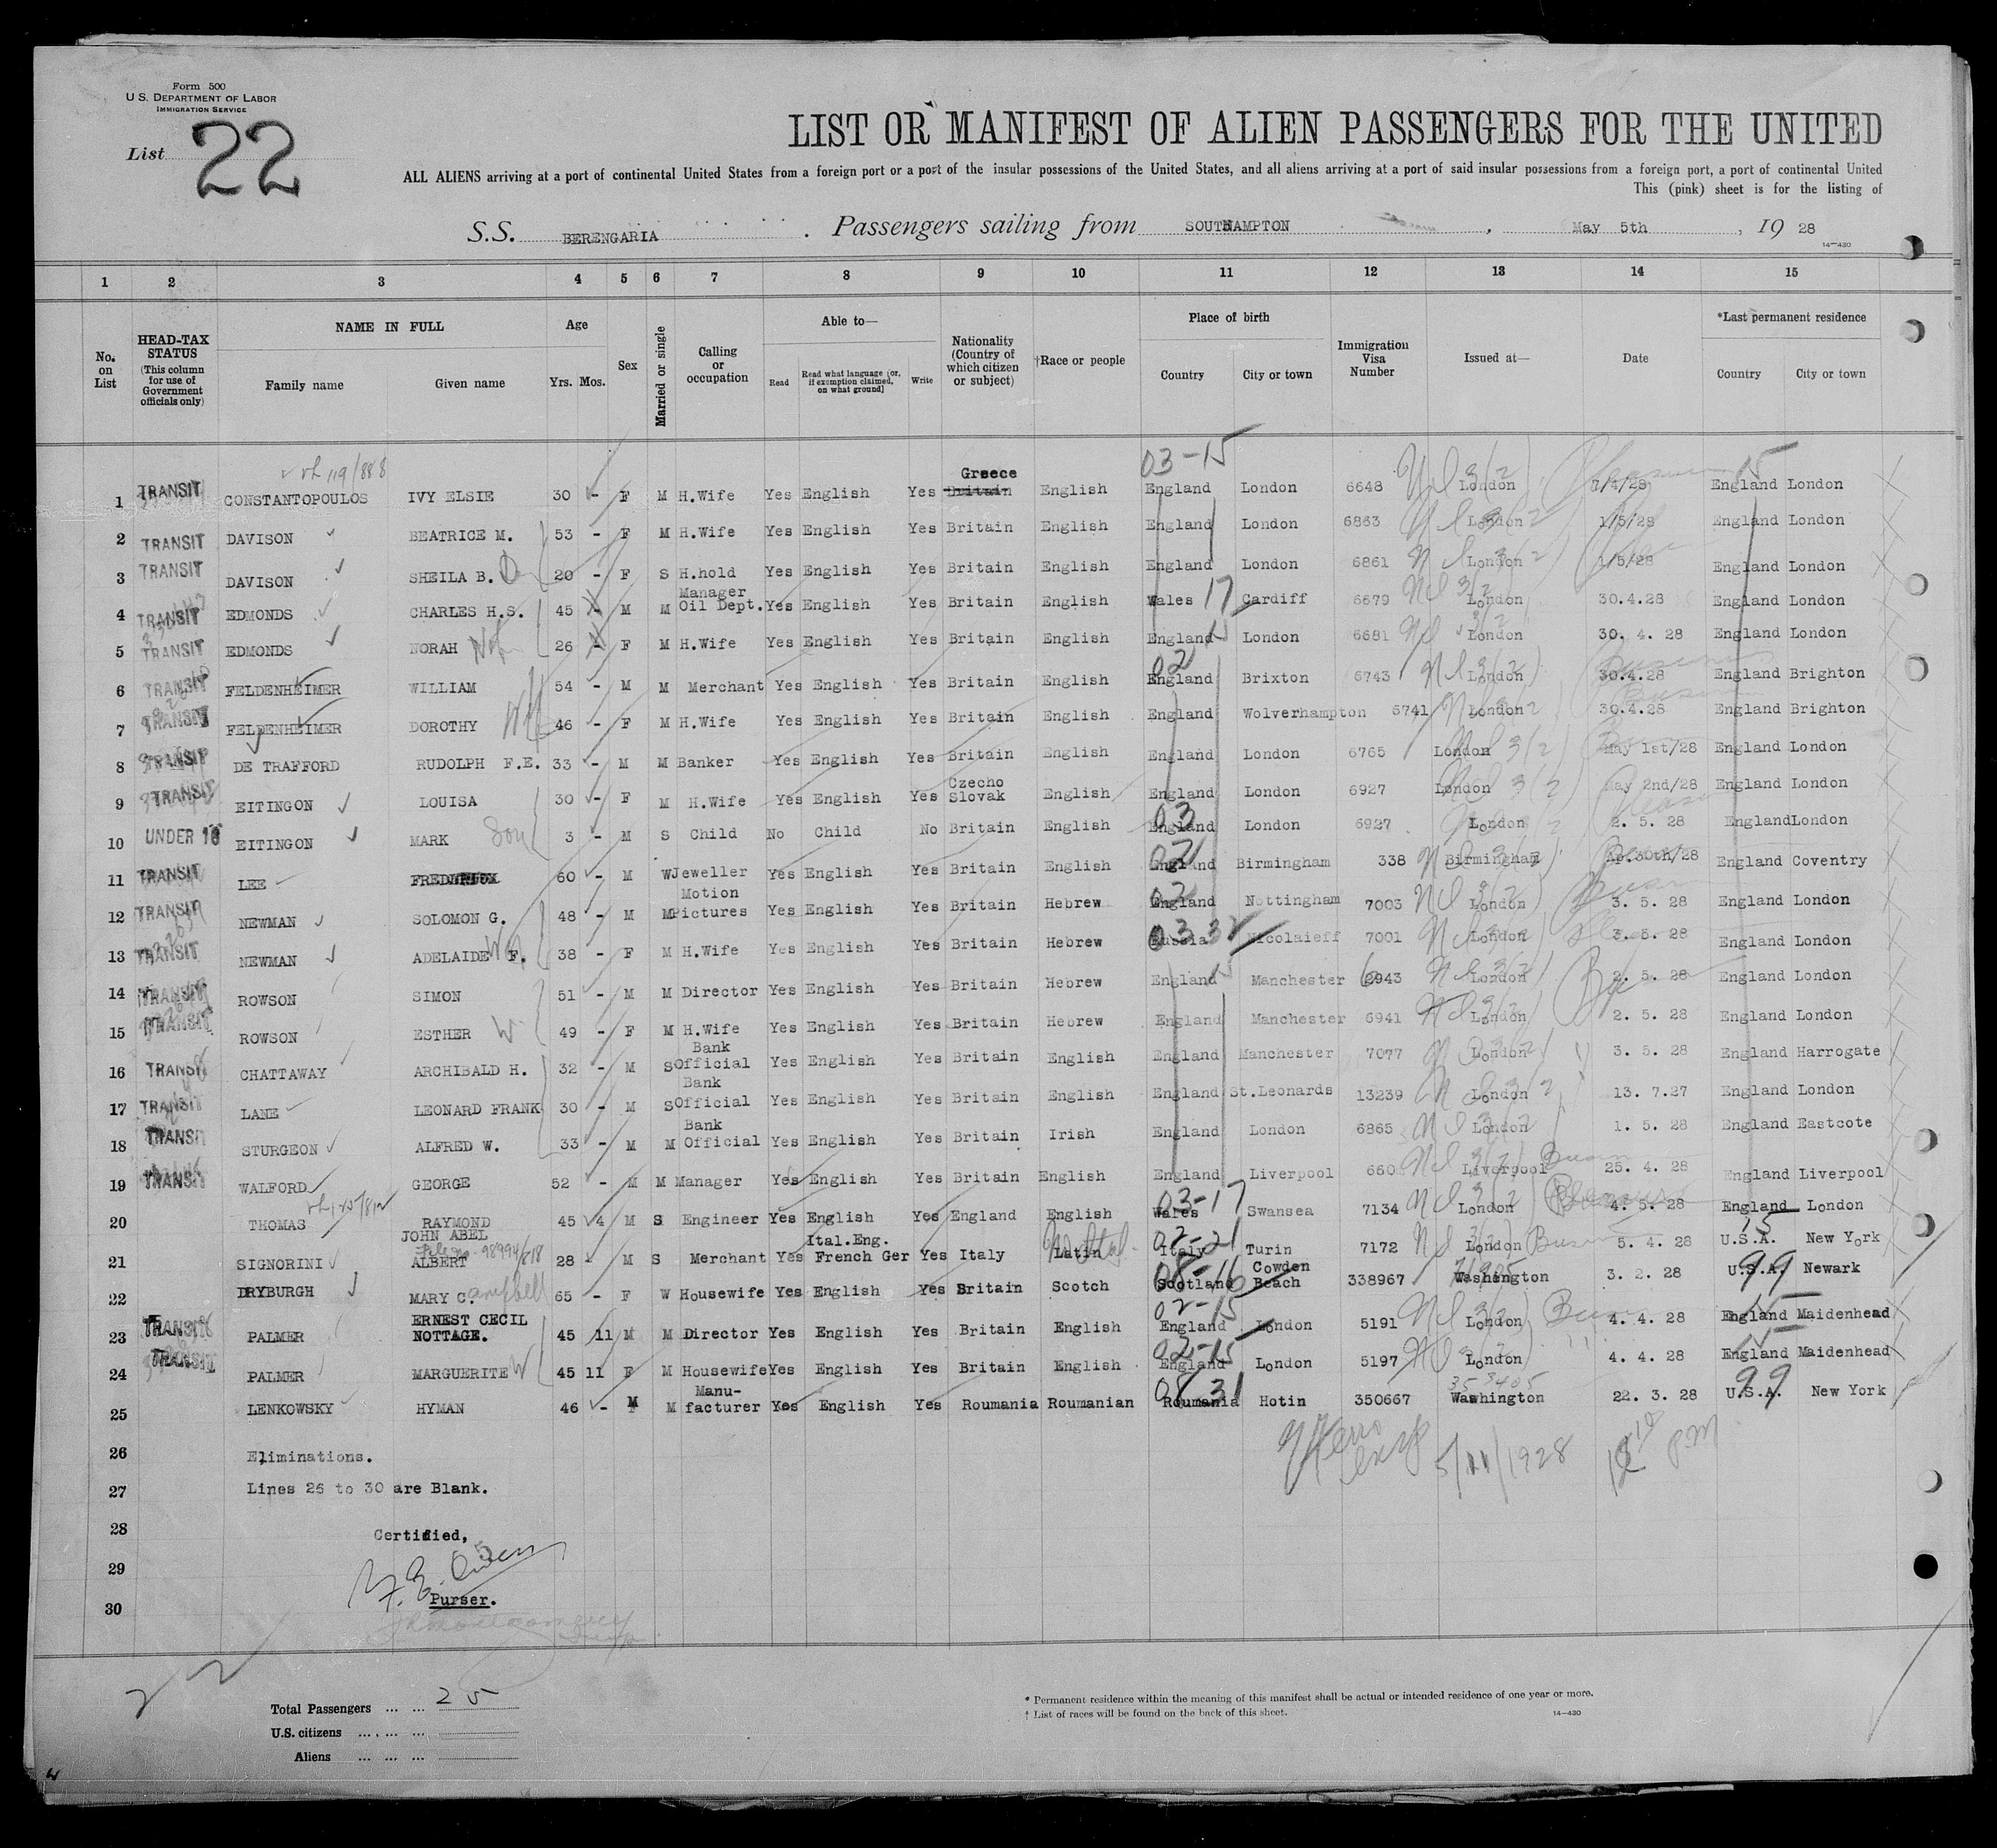 Form 500
U.S. DEPARTMENT OF LABOR
IMMIGRATION SERVICE
List 22
LIST OR MANIFEST OF ALIEN PASSENGERS FOR THE UNITED
ALL ALIENS arriving at a port of continental United States from a foreign port or a port of the insular possessions of the United States, and all aliens arriving at a port of said insular possessions from a foreign port, a port of continental United
This (pink) sheet is for the listing of
S.S. BERENGARIA . Passengers sailing from SOUTHAMPTON , May 5th , 19 28
14—430
1 2 3 4 5 6 7 8 9 10 11 12 13 14 15
No. on List
HEAD-TAX STATUS (This column for use of Government officials only)
NAME IN FULL
Family name Given name
Age
Yrs. Mos.
Sex
Married or single
Calling or occupation
Able to—
Read Read what language [or, if exemption claimed, on what ground] Write
Nationality (Country of which citizen or subject)
†Race or people
Place of birth
Country City or town
Immigration Visa Number
Issued at—
Date
*Last permanent residence
Country City or town
03-15 15
1 TRANSIT CONSTANTOPOULOS IVY ELSIE 30 - F M H.Wife Yes English Yes Greece Britain English England London 6648 London 7/4/28 England London
2 TRANSIT DAVISON BEATRICE M. 53 - F M H.Wife Yes English Yes Britain English England London 6863 London 1/5/28 England London
3 TRANSIT DAVISON SHEILA B. 20 - F S H.hold Yes English Yes Britain English England London 6861 London 1/5/28 England London
4 TRANSIT EDMONDS CHARLES H.S. 45 - M M Manager Oil Dept. Yes English Yes Britain English Wales 17 Cardiff 6679 London 30.4.28 England London
5 TRANSIT EDMONDS NORAH 26 - F M H.Wife Yes English Yes Britain English England London 6681 London 30. 4. 28 England London
6 TRANSIT FELDENHEIMER WILLIAM 54 - M M Merchant Yes English Yes Britain English 02 England Brixton 6743 London 30.4.28 England Brighton
7 TRANSIT FELDENHEIMER DOROTHY 46 - F M H.Wife Yes English Yes Britain English England Wolverhampton 6741 London 30.4.28 England Brighton
8 TRANSIT DE TRAFFORD RUDOLPH F.E. 33 - M M Banker Yes English Yes Britain English England London 6765 London May 1st/28 England London
9 TRANSIT EITINGON LOUISA 30 - F M H.Wife Yes English Yes Czecho Slovak English England London 6927 London May 2nd/28 England London
10 UNDER 16 EITINGON MARK Son 3 - M S Child No Child No Britain English 03 England London 6927 London 2. 5. 28 England London
11 TRANSIT LEE 60 - M W Jeweller Yes English Yes Britain English 02 England Birmingham 338 Birmingham Ap.30th/28 England Coventry
12 TRANSIT NEWMAN SOLOMON G. 48 - M M Motion Pictures Yes English Yes Britain Hebrew 02 England Nottingham 7003 London 3. 5. 28 England London
13 TRANSIT NEWMAN ADELAIDE F. 38 - F M H.Wife Yes English Yes Britain Hebrew 03 32 Russia Nicolaieff 7001 London 3. 5. 28 England London
14 TRANSIT ROWSON SIMON 51 - M M Director Yes English Yes Britain Hebrew England Manchester 6943 London 2. 5. 28 England London
15 TRANSIT ROWSON ESTHER W 49 - F M H.Wife Yes English Yes Britain Hebrew England Manchester 6941 London 2. 5. 28 England London
16 TRANSIT CHATTAWAY ARCHIBALD H. 32 - M S Bank Official Yes English Yes Britain English England Manchester 7077 London 3. 5. 28 England Harrogate
17 TRANSIT LANE LEONARD FRANK 30 - M S Bank Official Yes English Yes Britain English England St.Leonards 13239 London 13. 7.27 England London
18 TRANSIT STURGEON ALFRED W. 33 - M M Bank Official Yes English Yes Britain Irish England London 6865 London 1. 5. 28 England Eastcote
19 TRANSIT WALFORD GEORGE 52 - M M Manager Yes English Yes Britain English England Liverpool 660 Liverpool 25. 4. 28 England Liverpool
20 THOMAS RAYMOND JOHN ABEL 45 4 M S Engineer Yes English Yes England English 03-17 Wales Swansea 7134 London 4. 5. 28 England London
21 SIGNORINI ALBERT 28 - M S Merchant Yes Ital.Eng. French Ger Yes Italy Latin 02-21 Italy Turin 7172 London 5. 4. 28 15 U.S.A. New York
22 DRYBURGH MARY C. Campbell 65 - F W Housewife Yes English Yes Britain Scotch 08-16 Scotland Cowden Beach 338967 Washington 3. 2. 28 99 U.S.A. Newark
23 TRANSIT PALMER ERNEST CECIL NOTTAGE. 45 11 M M Director Yes English Yes Britain English 02-15 England London 5191 London 4. 4. 28 15 England Maidenhead
24 TRANSIT PALMER MARGUERITE W 45 11 F M Housewife Yes English Yes Britain English 02-15 England London 5197 London 4. 4. 28 15 England Maidenhead
25 LENKOWSKY HYMAN 46 - M M Manu- facturer Yes English Yes Roumania Roumanian 08 31 Roumania Hotin 350667 Washington 22. 3. 28 99 U.S.A. New York
26 Eliminations.
27 Lines 26 to 30 are Blank.
28 Certified,
29
Purser.
30
Total Passengers ... ... 25
U.S. citizens ... ... ...
Aliens ... ... ...
* Permanent residence within the meaning of this manifest shall be actual or intended residence of one year or more.
† List of races will be found on the back of this sheet.
14—430